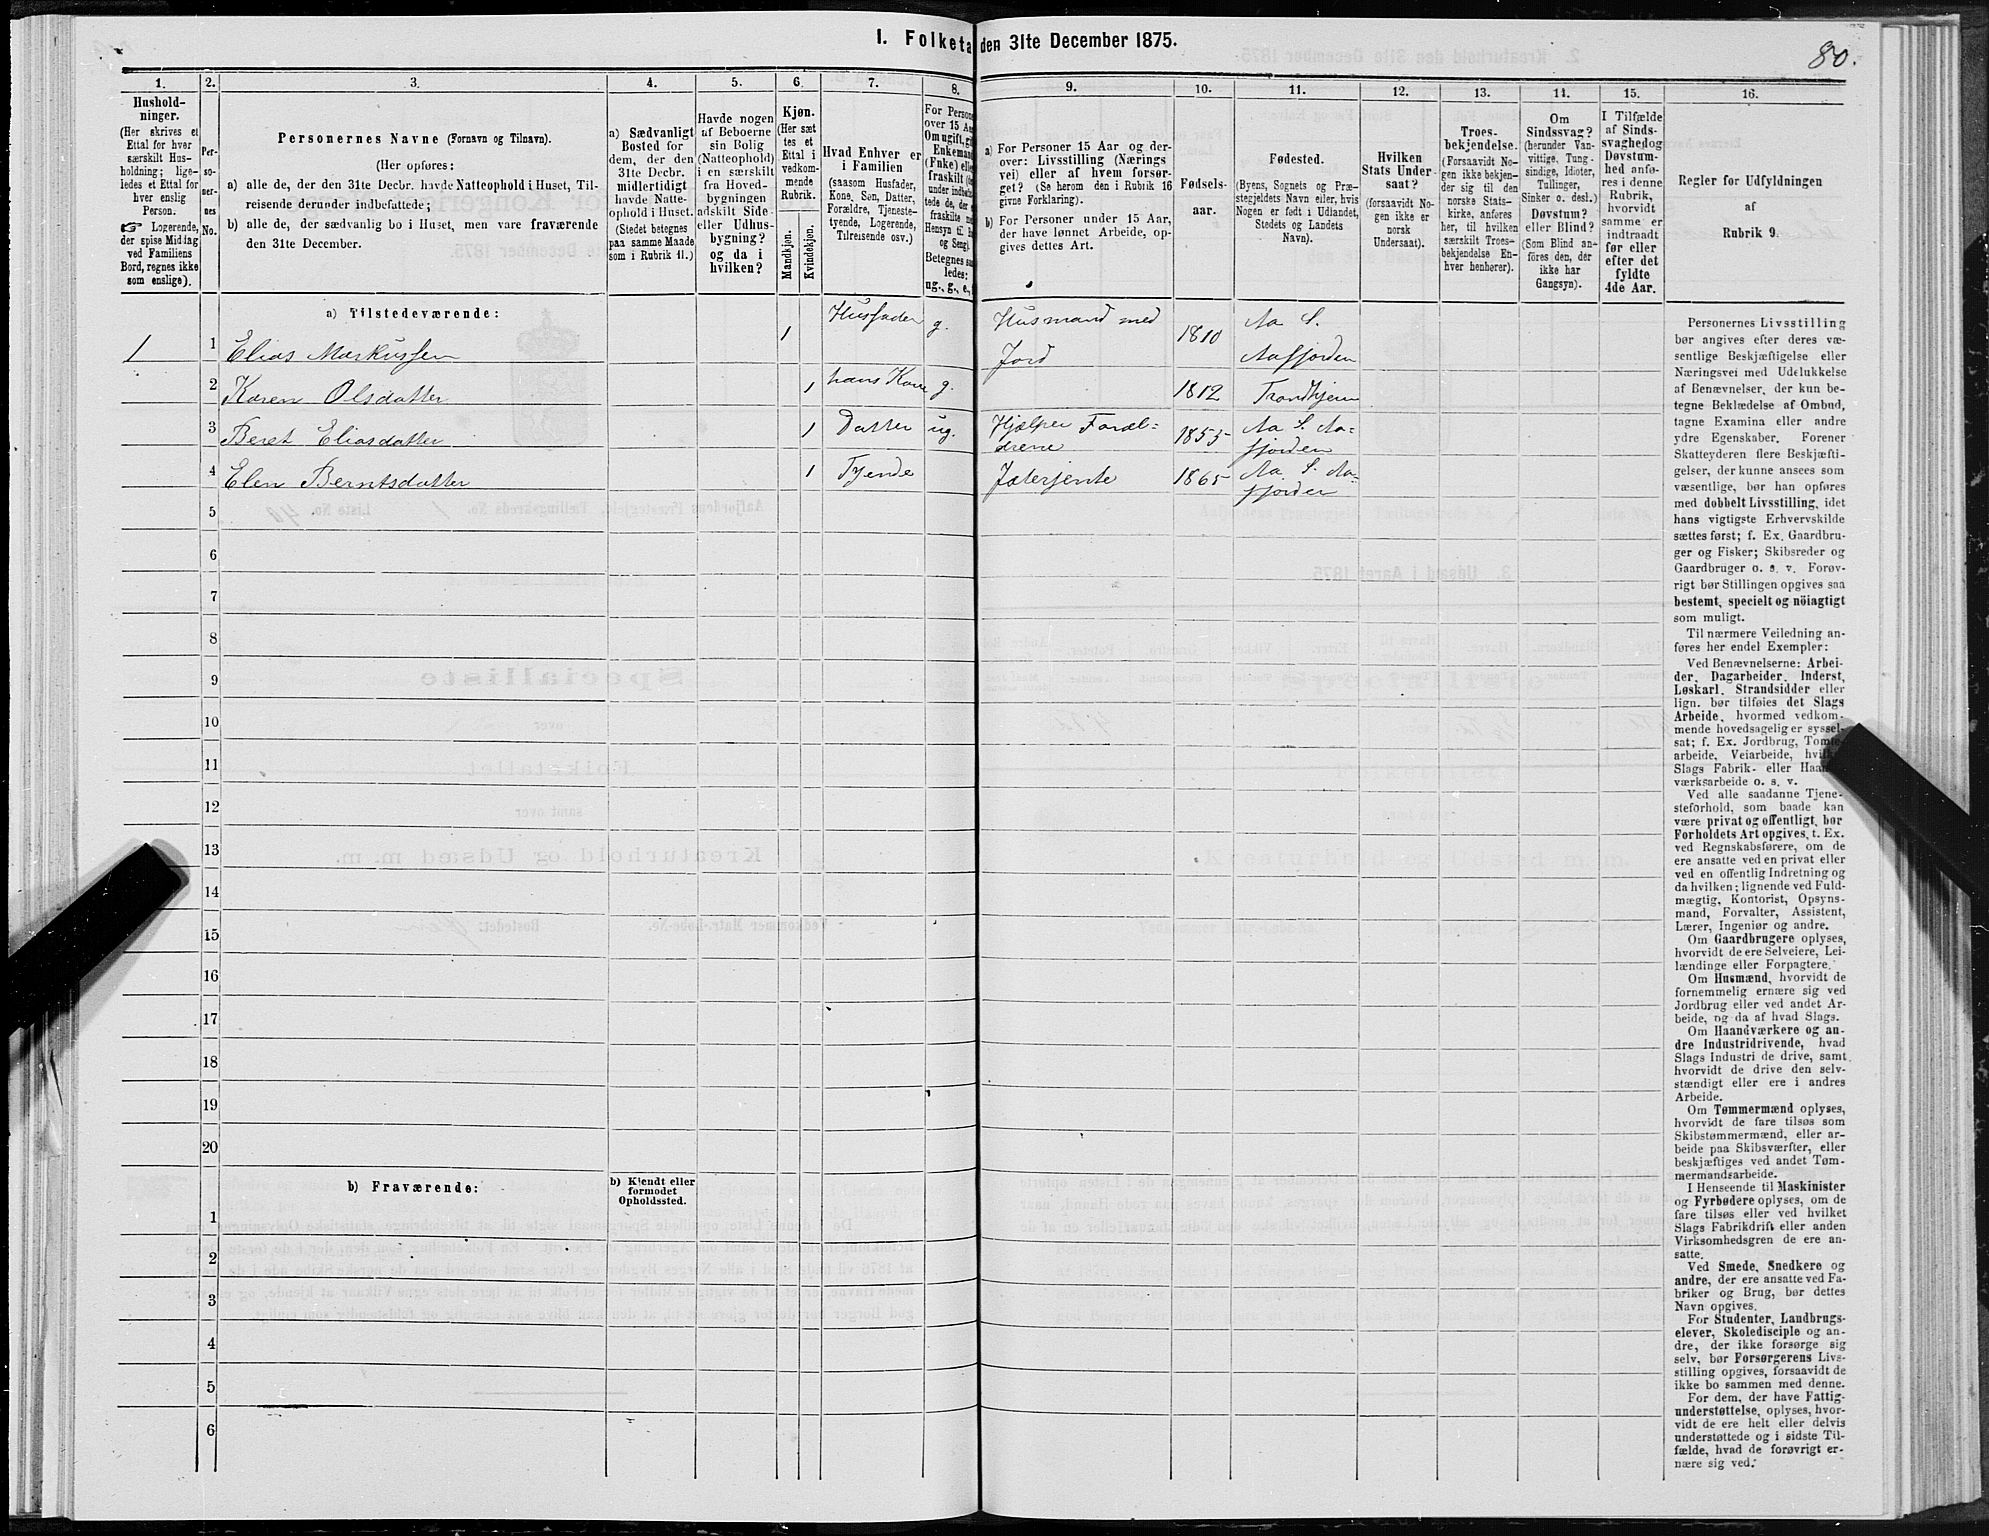 I. Folketa den 31te December 1875.
80.
1.
Hushold-
ninger.
(Her skrives et
Ettal for hver
særskilt Hus-
holdning; lige-
ledes et Ettal for
hver enslig
Person.
Logerende,
der spise Middag
ved Familiens
Bord, regnes ikke
som enslige).
2.
Per-
so-
ner-
nes
No.
3.
Personernes Navne (Fornavn og Tilnavn).
(Her opføres:
a) alle de, der den 31te Decbr. havde Natteophold i Huset, Til-
reisende derunder indbefattede;
b) alle de, der sædvanlig bo i Huset, men vare fraværende
den 31te December.
4.
a) Sædvanligt
Bosted for
dem, der den
31te Decbr.
midlertidigt
havde Natte-
ophold i Huset.
(Stedet betegnes
paa samme Maade
som i Rubrik 11.)
5.
Havde nogen
af Beboerne
sin Bolig
(Natteophold)
i en særskilt
fra Hoved-
bygningen
adskilt Side-
eller Udhus-
bygning?
og da i
hvilken?
6.
Kjøn.
(Her sæt-
tes et
Ettal i
vedkom-
mende
Rubrik.
Mandkjøn.
Kvindekjøn.
7.
Hvad Enhver er
i Familien
(saasom Husfader,
Kone, Søn, Datter,
Forældre, Tjeneste-
tyende, Logerende,
Tilreisende osv.)
8.
For Person
over 15 Aa
Om ugift, gi
Enkemand
(Enke) elle
fraskilt
under indbefat-
tede de, der e
fraskilte
Hensyn til B
og Seng).
Betegnes saa
ledes:
ug., g., e.,
9.
a) For Personer 15 Aar og der-
over: Livsstilling (Nærings
vei) eller af hvem forsør-
get? (Se herom den i Rubrik 16
givne Forklaring).
b) For Personer under 15 Aar,
der have lønnet Arbeide, op-
gives dettes Art.
10.
Fødsels-
aar.
11.
Fødested.
(Byens, Sognets og Præ-
stegjeldets Navn eller, hvis
Nogen er født i Udlandet,
Stedets og Landets
Navn).
12.
Hvilken
Stats Under-
saat?
(forsaavidt No-
gen ikke er
norsk
Undersaat).
13.
Troes-
bekjendelse.
(Forsaavidt No-
gen ikke bekjen-
der sig til den
norske Stats-
kirke, anføres
her, til hvilken
særskilt Troes-
bekjendelse En-
hver henhører).
14.
Om
Sindssvag?
(herunder Van-
vittige, Tung-
sindige, Idioter,
Tullinger,
Sinker o. desl.)
Døvstum?
eller Blind?
(Som Blind an-
føres den, der
ikke har
Gangsyn).
15.
I Tilfælde
af Sinds-
svaghed og
Døvstum-
hed anfø-
res i denne
Rubrik,
hvorvidt
samme er
indtraadt
før eller
efter det
fyldte
4de Aar.
16.
Regler for Udfyldningen
af
Rubrik 9.
a) Tilstedeværende:
1 1 Elias Markussen 1 Husfader g. Husmand med Jord 1810 Aa S. Aafjorden
2 Karen Olsdatter 1 hans Kone g. 1812 Trondhjem
3 Beret Eliasdatter 1 Datter ug. Hjælper Foræl-
drene 1855 Aa S. Aa-
fjorden
4 Elen Berntsdatter 1 Tyende Jæterjente 1865 Aa S. Aa-
fjorden
5
6
7
8
9
10
11
12
13
14
15
16
17
18
19
20
b) Fraværende:
b) Kjendt eller
formodet
Opholdssted.
1
2
3
4
5
6
Personernes Livsstilling
bør angives efter deres væ-
sentlige Beskjæftigelse eller
Næringsvei med Udelukkelse
af Benævnelser, der kun be-
tegne Beklædelse af Ombud,
tagne Examina eller andre
ydre Egenskaber. Forener
Skatteyderen flere Beskjæfti-
gelser, der kunne ansees som
væsentlige, bør han opføres
med dobbelt Livsstilling, idet
hans vigtigste Erhvervskilde
sættes først; f. Ex. Gaardbru-
ger og Fisker; Skibsreder og
Gaardbruger o. s. v. Forøv-
rigt bør Stillingen opgives saa
bestemt, specielt og nöiagtigt
som muligt.
Til nærmere Veiledning an-
føres her endel Exempler:
Ved Benævnelserne: Arbei-
der, Dagarbeider, Inderst,
Løskarl, Strandsidder eller
lign. bør tilføies det Slags
Arbeide, hvormed vedkom-
mende hovedsagelig er syssel-
sat; f. Ex. Jordbrug, Tomte-
arbeide, Veiarbeide, hvilket
Slags Fabrik- eller Haand-
værksarbeide o. s. v.
Ved alle saadanne Tjene-
steforhold, som baade kan
være privat og offentligt, bør
Forholdets Art opgives, t. Ex.
ved Regnskabsførere, om de
ere ansatte ved en privat eller
ved en offentlig Indretning og
da hvilken; lignende ved Fuld-
mægtig, Kontorist, Opsyns-
mand, Forvalter, Assistent,
Lærer, Ingeniør og andre.
Om Gaardbrugere oplyses,
hvorvidt de ere Selveiere, Lei-
lændinge eller Forpagtere.
Om Husmænd, hvorvidt de
fornemmelig ernære sig ved
Jordbrug eller ved andet Ar-
beide, og da af hvad Slags.
Om Haandværkere og an-
dre Industridrivende, hvad
Slags Industri de drive, samt
hvorvidt de drive den selv-
stændigt eller ere i andres
Arbeide.
Om Tømmermænd oplyses,
hvorvidt de fare tilsøs som
Skibstømmermænd, eller ar-
beide paa Skibsværfter, eller
beskjæftiges ved andet Tøm-
mermandsarbeide.
I Henseende til Maskinister
og Fyrbødere oplyses, om de
fare tilsøs eller ved hvilket
Slags Fabrikdrift eller anden
Virksomhedsgren de ere an-
satte.
Ved Smede, Snedkere og
andre, der ere ansatte ved Fa-
briker og Brug, bør dettes
Navn opgives.
For Studenter, Landbrugs-
elever, Skoledisciple og an-
dre, der ikke forsørge sig
selv, bør Forsørgerens Livs-
stilling opgives, forsaavidt de
ikke bo sammen med denne.
For dem, der have Fattig-
understøttelse, oplyses, hvor-
vidt de ere helt eller delvis
understøttede og i sidste Til-
fælde, hvad de forøvrigt er-
nære sig ved.